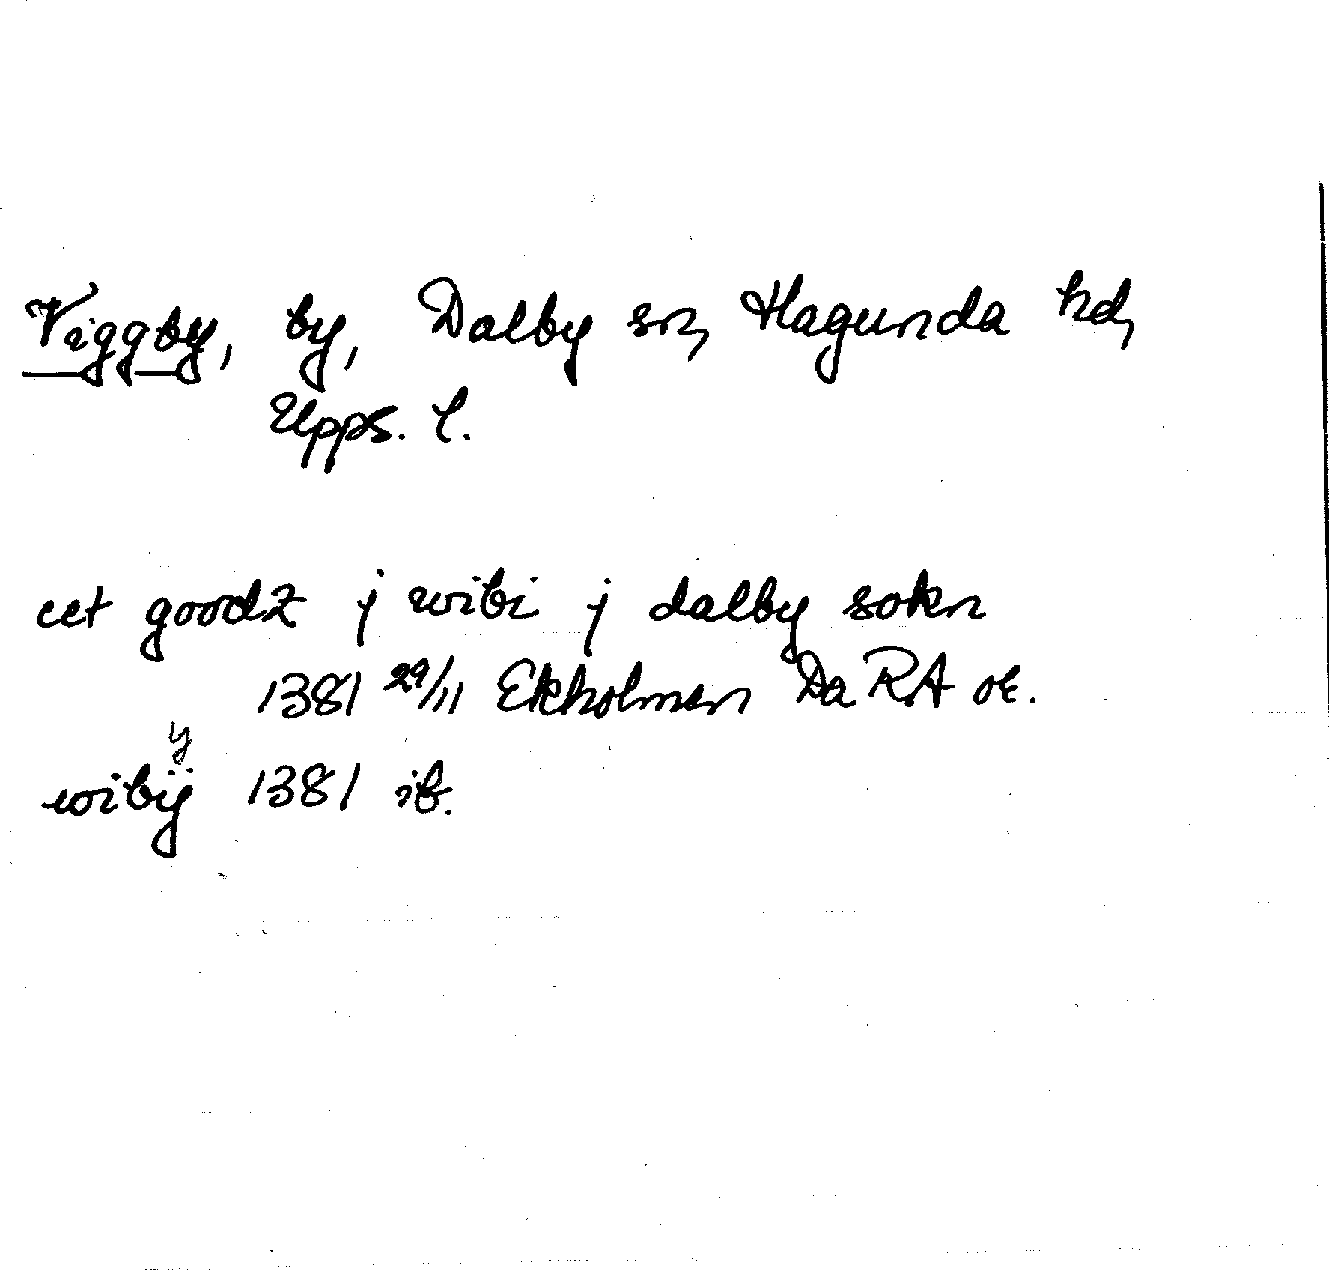 Viggby, by, Dalby sn, Hagunda hd,
Upps. l.
eet goodz j wibi j dalby sokn
1381 29/11 Ekholmen Da RA or.
y
wibÿ 1381 ib.